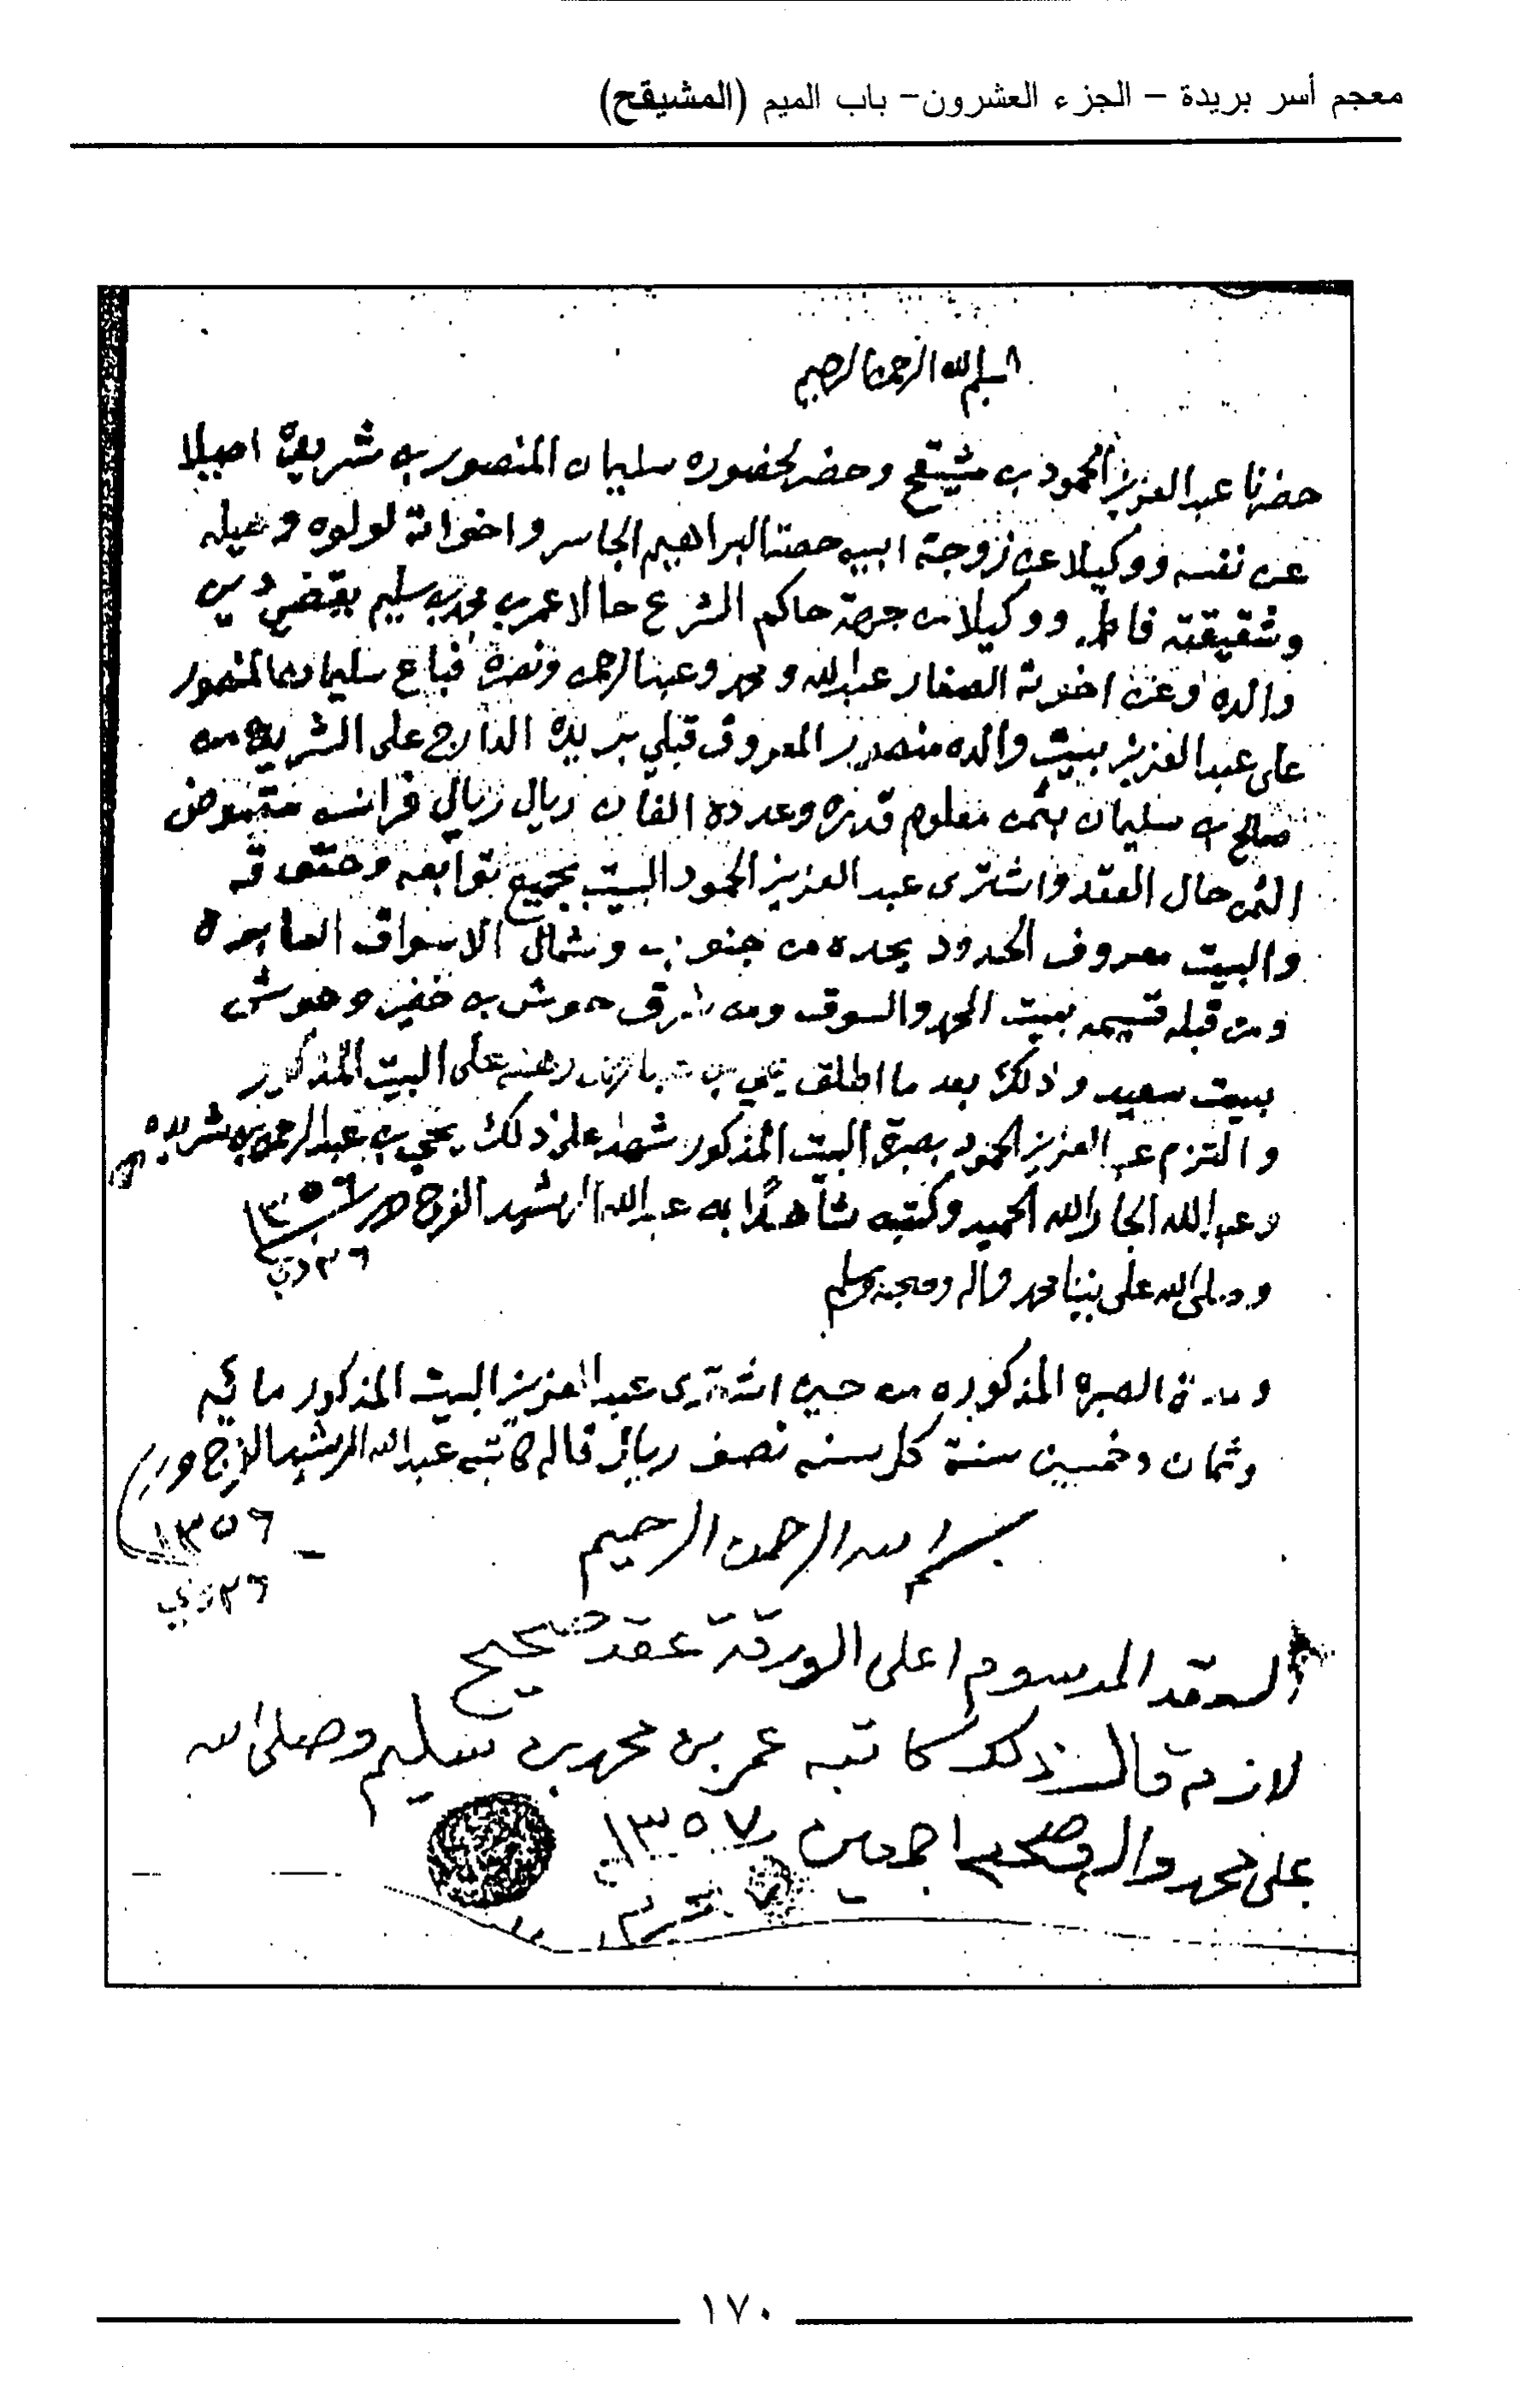 معجم أسر بريدة – الجزء العشرون– باب الميم (المشيقح)
بسم الله الرحمن الرحيم
حضرنا عبد العزيز الحمود بن مشيقح وحضر لحضوره سليمان المنصور بن شريده اصيلا
عن نفسه ووكيلا عن زوجة ابيه حصة البراهيم الجاسر واخواته لولوه وهيله
وشقيقته فاطمه ووكيلا من جهة حاكم الشرع حالا عمر بن محمد بن سليم بقضي دين
والده وعن اخوته الصغار عبدالله و محمد وعبدالرحمن ونصره فباع سليمان المنصور
على عبد العزيز بيت والده منصور المعروف قبلي بريده الدارج على الشريده من
صالح بن سليمان بثمن معلوم قدره وعدده الفان ريال ريالي فرانسه مقبوض
الثمن حال العقد واشترى عبد العزيز الحمود البيت بجميع توابعه وحقوقه
والبيت معروف الحدود يحده من جنوب وشمال الاسواق العابرة
ومن قبله قسيمه بيت المحمد والسوق ومن شرق حوش بن خضير وحوش
بيت سعيد وذلك بعد ما اطلق رهنه على البيت المذكور
والتزم عبد العزيز الحمود بصبرة البيت المذكور شهد على ذلك يحيى بن عبد الرحمن بن شريده
وعبد الله الجارالله الحميد وكتبه شاهدًا به عبدالله الرشيد الفرج حرر ١٣٥٦
٢٦ ذي
وصلى الله على نبينا محمد واله وصحبه وسلم
ومدة الصبره المذكوره من حين اشترى عبد العزيز البيت المذكور مائه
وثمان وخمسين سنة كل سنه نصف ريال قاله كاتبه عبدالله الرشيد الفرج حرر
١٣٥٦
٢٦ ذي
بسم الله الرحمن الرحيم
العقد المرسوم اعلى الورقة عقد صحيح
لازم قال ذلك كاتبه عمر بن محمد بن سليم وصلى الله
على محمد واله وصحبه اجمعين ١٣٥٧
محرم
١٧٠